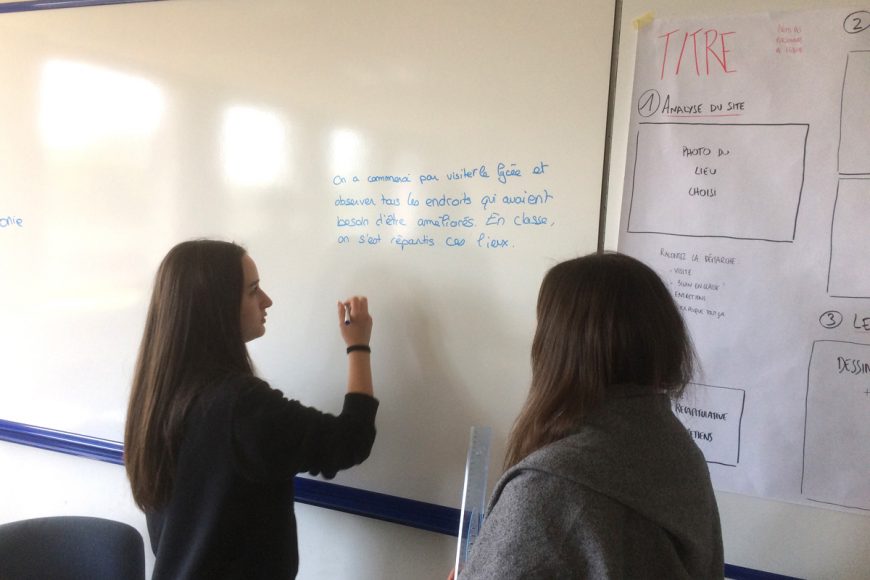 onie
On a commencé par visiter le lycée et
observer tous les endroits qui avaient
besoin d'être améliorés. En classe,
on s'est répartis ces lieux.
TITRE
1 ANALYSE DU SITE
PHOTO DU
LIEU
CHOISI
RACONTEZ LA DÉMARCHE :
- VISITE
- BILAN EN CLASSE
- ENTRETIENS
RÉCAPITULATIVE
TIENS
2
3 LE
DESSIN
+